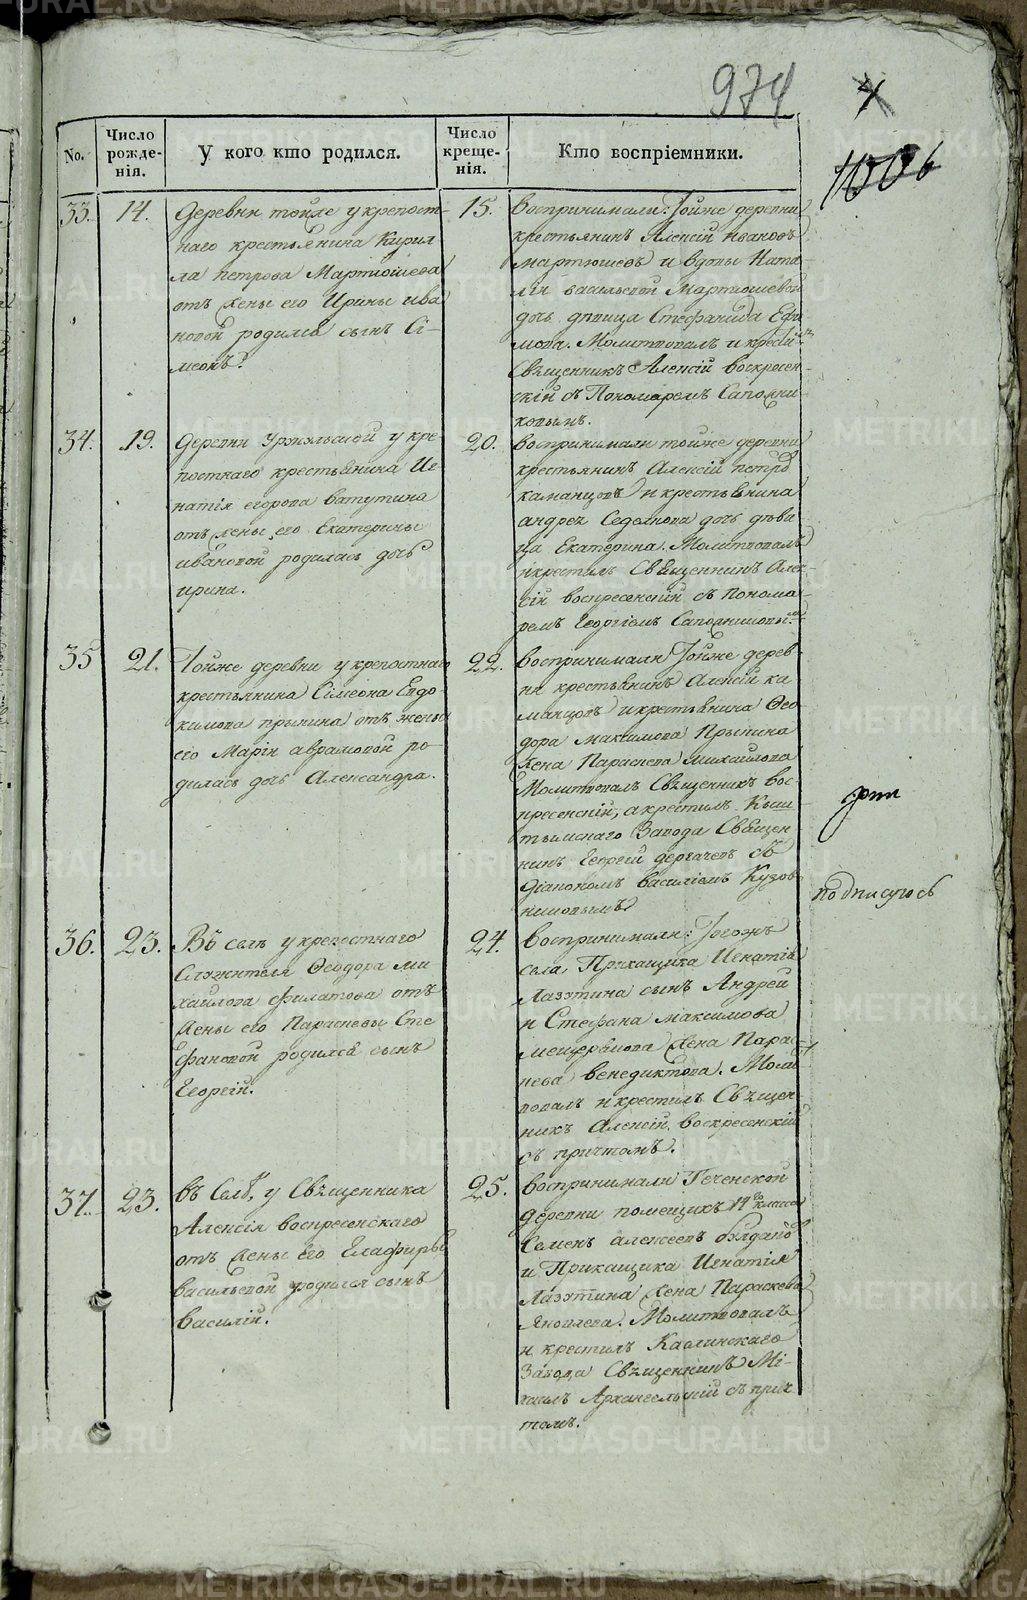 974
1006
No.
Число рожде-нія.
У кого кто родился.
Число креще-нія.
Кто воспріемники.
33.
14.
Деревни тойже у крепост-
наго крестьянина Кирил
ла петрова Мартюшева
отъ жены его Ирины ива
новой родился сынъ Сі-
меонъ.
15.
воспринимали: Тойже деревни
крестьянинъ Алексій ивановъ
мартюшевъ и вдовы Ната
ліи васильевой Мартюшевой
дочь девица Стефанида Ефи
мова. Молитвовалъ и крестилъ
Священникъ Алексій воскресен
скій съ Пономаремъ Сапожни
ковымъ.
34.
19.
деревни у кре
постнаго крестьянина Иг
натія егорова ватутина
отъ жены его Екатерины
ивановой родилась дочь
ирина.
20.
воспринимали тойже деревни
крестьянинъ Алексій петровъ
каманцовъ и крестьянина
андрея Седелкова дочь деви
ца Екатерина. Молитвовалъ
и крестилъ Священникъ Алек
сій воскресенскій съ Понома
ремъ Георгіемъ Сапожниковымъ.
35
21.
Тойже деревни у крепостнаго
крестьянина Сімеона Евдо
кимова прыкина отъ жены
его Маріи аврамовой ро-
дилась дочь Александра.
22.
воспринимали Тойже дерев
ни крестьянинъ Алексій ка
манцовъ и крестьянина Ѳео
дора максимова Прыкина
жена Параскева михайлова
Молитвовалъ Священникъ вос-
кресенскій, а крестилъ Кыш
тымскаго Завода Священ
никъ Георгій дергачевъ съ
діакономъ василіемъ Кузов
никовымъ
36.
23.
Въ селѣ у крепостнаго
Служителя Ѳеодора ми
хайлова филатова отъ
жены его Параскевы Сте
фановой родился сынъ
Георгій.
24.
воспринимали: Тогожъ
села Прикащика Игнатія
Лазэтина сынъ Андрей
и Стефана максимова
мещерякова жена Парас-
кева венедиктова. Молит
вовалъ и крестилъ Священ
никъ Алексій воскресенскій
съ причтомъ.
37.
23.
въ Селѣ, у Священника
Алексія воскресенскаго
отъ жены его Глафиры
васильевой родился сынъ
василій.
25.
воспринимали Теченской
деревни помещикъ 14го класса
Семенъ алексеевъ
и Прикащика Игнатія
Лазэтина жена Параскева
Яковлева. Молитвовалъ
и крестилъ Каслинскаго
Завода Священникъ Мі-
хаилъ Архангельскій съ прич
томъ.
подписуюсь